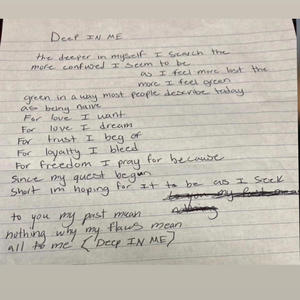 Deep IN ME
the deeper in myself I search the
more confused I seem to be
as I feel more lost the
more I feel green
green in a way most people describe today
as being naive
For love I want
For love I dream
For trust I beg of
For loyalty I bleed
For freedom I pray for because
Since my quest begun
Short im hoping for it to be as I seek
to you my past mean
nothing why my flaws mean
all to me (Deep IN ME)